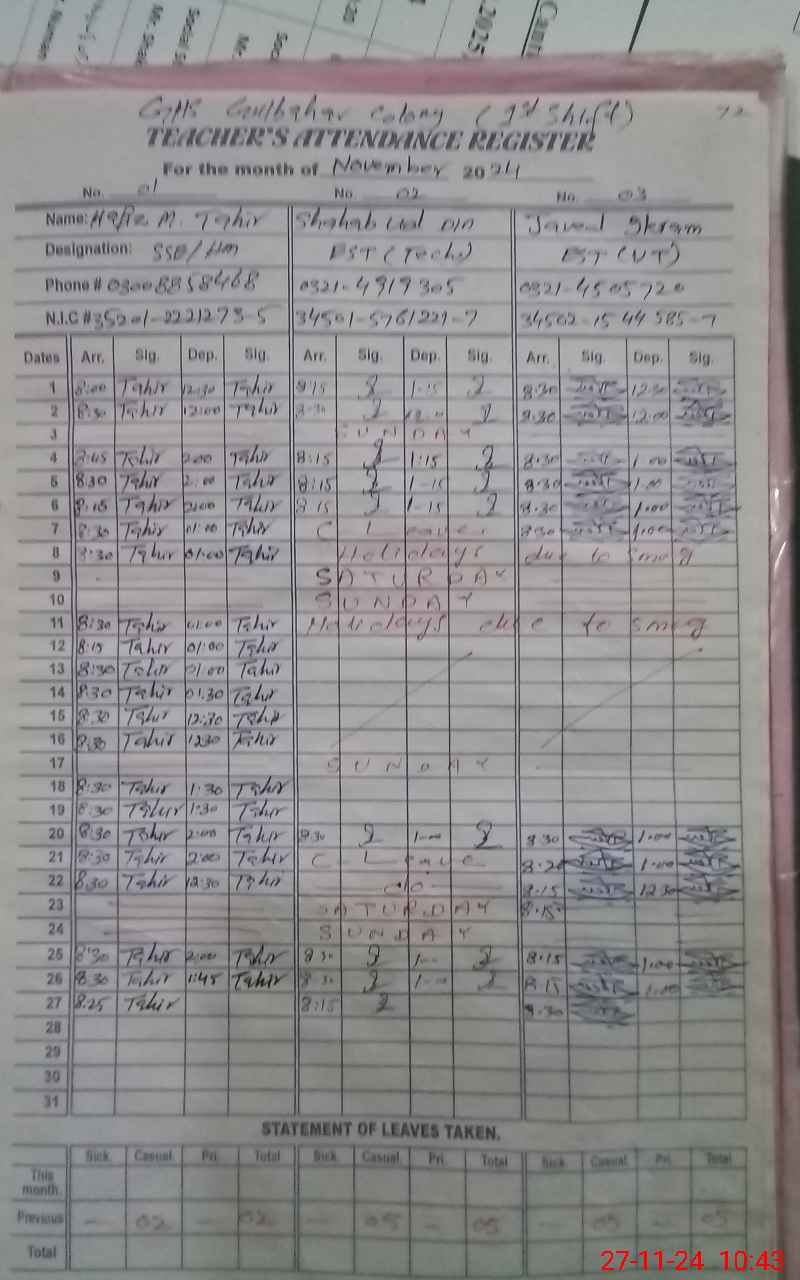 2025
GHS Gulbahar Colony (1st Shift)
TEACHER'S ATTENDANCE REGISTER
For the month of November 2024
No. 01 No. 02 No. 03
Name: Hafiz M. Tahir Shahab Ud Din Javed Ikram
Designation: SSE/HM EST (Tech) EST (VT)
Phone # 03008858468 0321-4919305 0321-4505720
N.I.C # 35201-2221273-5 34501-5761221-7 34502-1544585-7
Dates Arr. Sig. Dep. Sig. Arr. Sig. Dep. Sig. Arr. Sig. Dep. Sig.
1 8:00 Tahir 12:30 Tahir 8:15 1-15 8:30 12:30
2 8:30 Tahir 12:00 Tahir 8:30 8:30 12:00
3 SUNDAY
4 7:45 Tahir 2:00 Tahir 8:15 1:15 8:30 1:00
5 8:30 Tahir 2:00 Tahir 8:15 1-15 8:30 1:00
6 8:15 Tahir 2:00 Tahir 8:15 1-15 8:30 1:00
7 8:30 Tahir 01:00 Tahir C Leave 8:30 1:00
8 8:30 Tahir 01:00 Tahir Holidays due to smog
9 SATURDAY
10 SUNDAY
11 8:30 Tahir 01:00 Tahir Holidays due to smog
12 8:15 Tahir 01:00 Tahir
13 8:30 Tahir 01:00 Tahir
14 8:30 Tahir 01:30 Tahir
15 8:30 Tahir 12:30 Tahir
16 8:30 Tahir 12:30 Tahir
17 SUNDAY
18 8:30 Tahir 1:30 Tahir
19 8:30 Tahir 1:30 Tahir
20 8:30 Tahir 2:00 Tahir 8:30 1-00 8:30 1:00
21 8:30 Tahir 2:00 Tahir C Leave 8:20 1:00
22 8:30 Tahir 12:30 Tahir do 8:15 12:30
23 SATURDAY 8:15
24 SUNDAY
25 8:30 Tahir 2:00 Tahir 8:30 1- 8:15 1:00
26 8:30 Tahir 1:45 Tahir 8:30 1-00 8:15 1:00
27 8:25 Tahir 8:15 8:30
28
29
30
31
STATEMENT OF LEAVES TAKEN.
Sick Casual Pri. Total Sick Casual Pri. Total Sick Casual Pri. Total
This month.
Previous — 02 — 02 — 05 — 05 — 05 — 05
Total
27-11-24 10:43